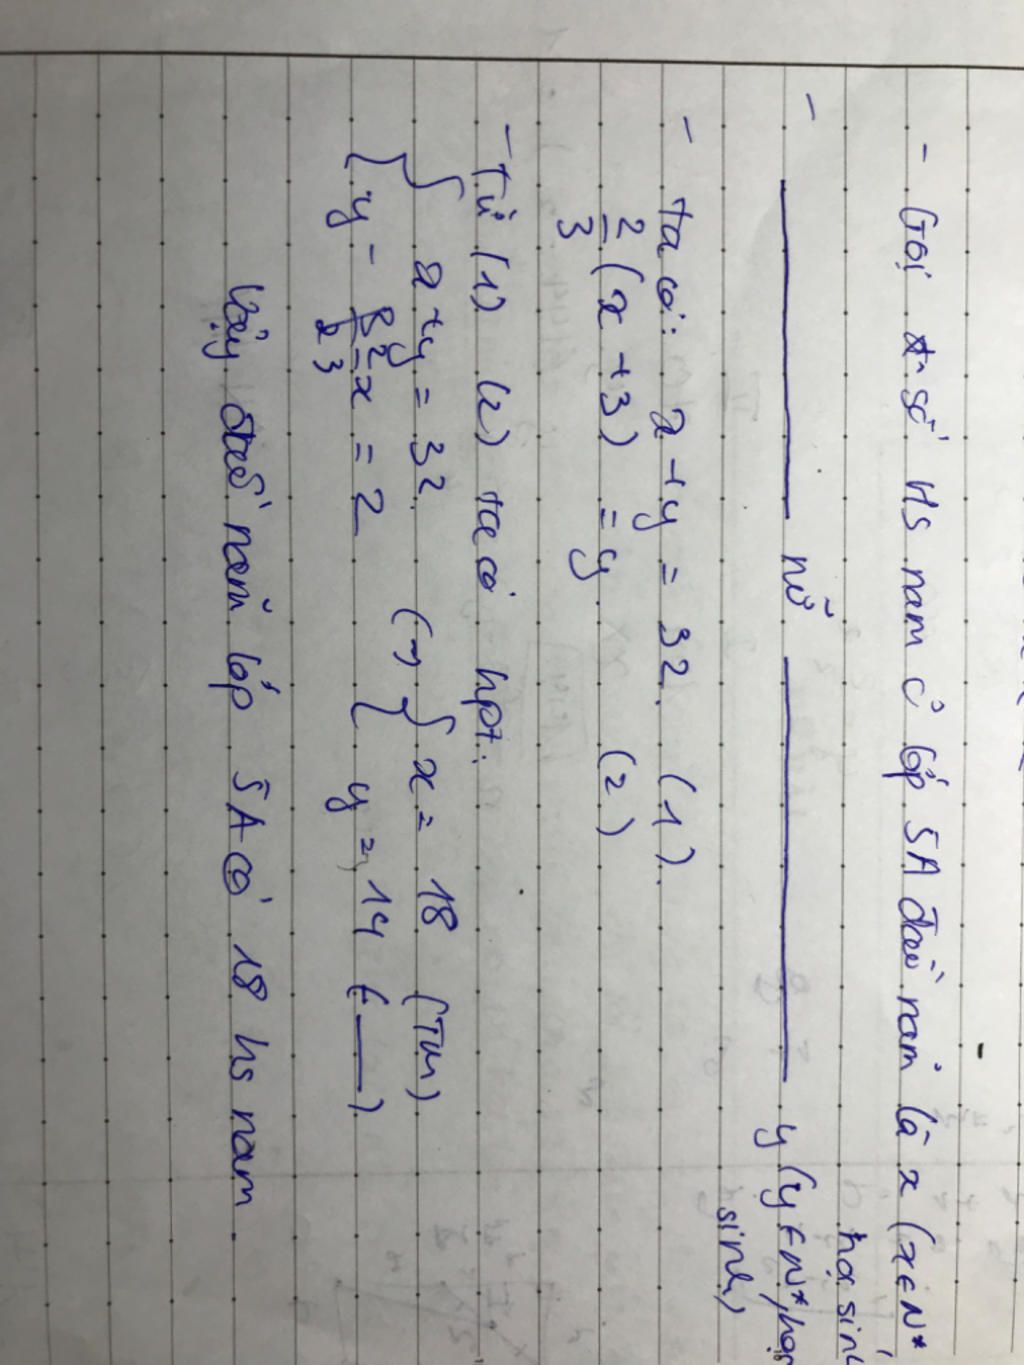 - Gọi số Hs nam ở lớp 5A đầu năm là x (x∈N*,
học sinh)
- ——— nữ ——— y (y∈N*, học
sinh)
- Ta có: x + y = 32. (1).
2/3 (x + 3) = y. (2)
- Từ (1) (2) ta có hpt:
{ x + y = 32. (=) { x = 18 (TM)
{ y - 2/3 x = 2 { y = 14 (——)
Vậy đầu năm lớp 5A có 18 hs nam.